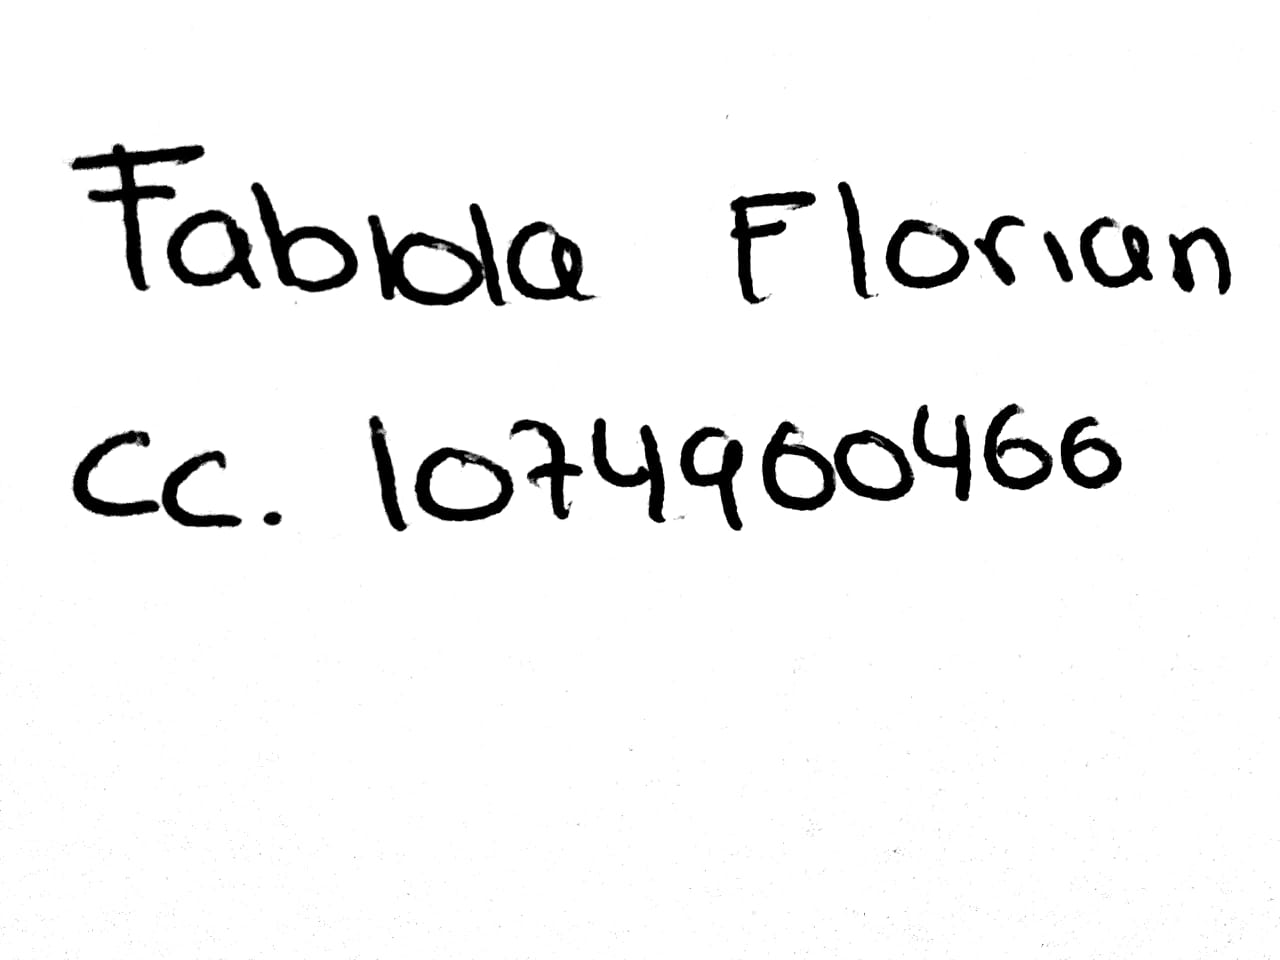 Fabiola Florian
CC. 1074960466